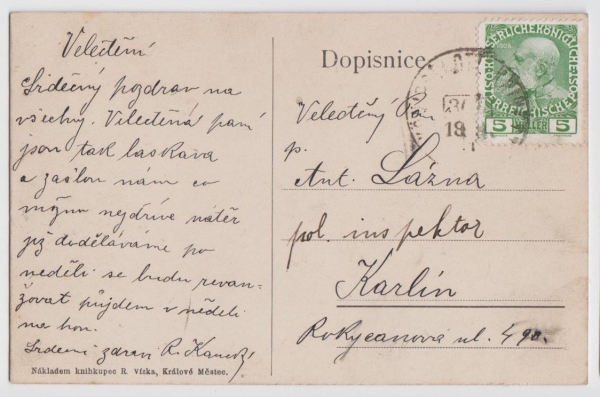 Velectění
Srdečný pozdrav na
všechny. Velectěná paní
jsou tak laskavá
a zašlou nám co
možno nejdříve nátěr
již doděláváme po
neděli se budu revan-
žovat půjdem v neděli
na hon.
Srdeční zdraví R.
Nákladem knihkupec R. Vízka, Králové Městec.
Dopisnice
KAISERLICHE KÖNIGLICHE
ÖSTERREICHISCHE
1908
5 HELLER 5
Velectěný Pan
p.
Ant. Lázna
pol. inspektor
Karlín
Rokycanova ul. 490.